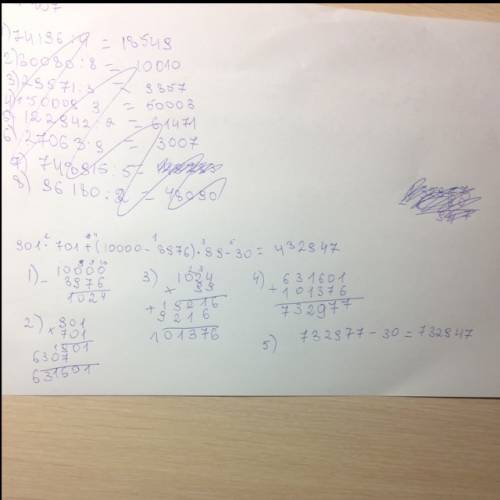 1) 74196 : 4 = 18549
2) 30080 : 8 = 10010
3) 29571 : 3 = 9857
4) 150009 3 = 50003
5) 122942 2 = 61471
6) 27063 : 9 = 3007
7) : 5 =
8) 96180 : 2 - 48090
901 · 701 + (10000 - 8976) · 99 - 30 = 432947
1) 10000
- 8976
1024
2) 901
× 701
901
6307
631601
3) 1024
× 99
+ 9216
9216
101376
4) 631601
+ 101376
732977
5) 732977 - 30 = 732947